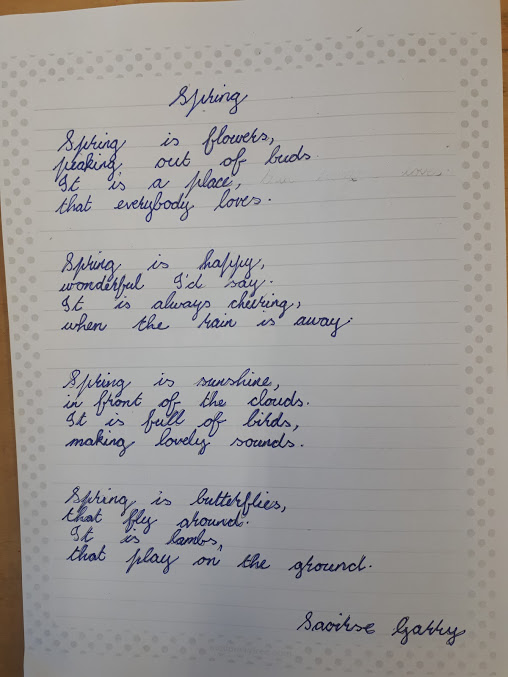 Spring
Spring is flowers,
peaking, out of buds.
It is a place,
that everybody loves.
Spring is happy,
wonderful I'd say.
It is always cheiring,
when the rain is away.
Spring is sunshine,
in front of the clouds.
It is full of birds,
making lovely sounds.
Spring is butterflies,
that fly around.
It is lambs,
that play on the ground.
Saoirse Garry